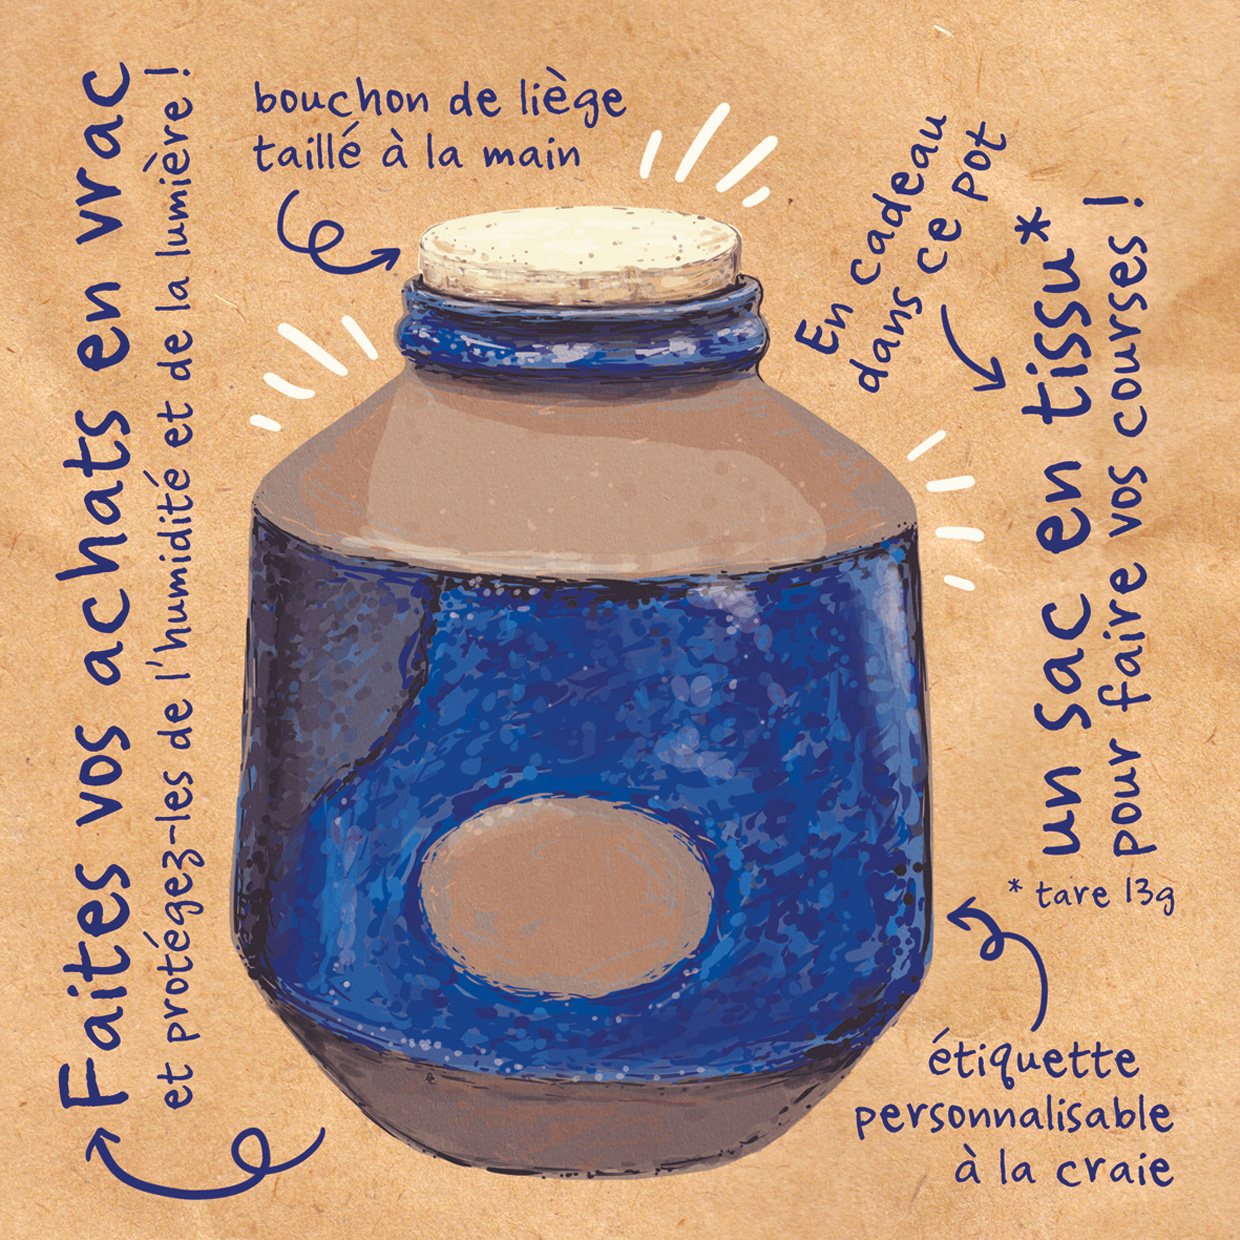 bouchon de liège
taillé à la main
Faites vos achats en vrac
et protégez-les de l'humidité et de la lumière !
En cadeau
dans ce pot
un sac en tissu*
pour faire vos courses !
* tare 13g
étiquette
personnalisable
à la craie